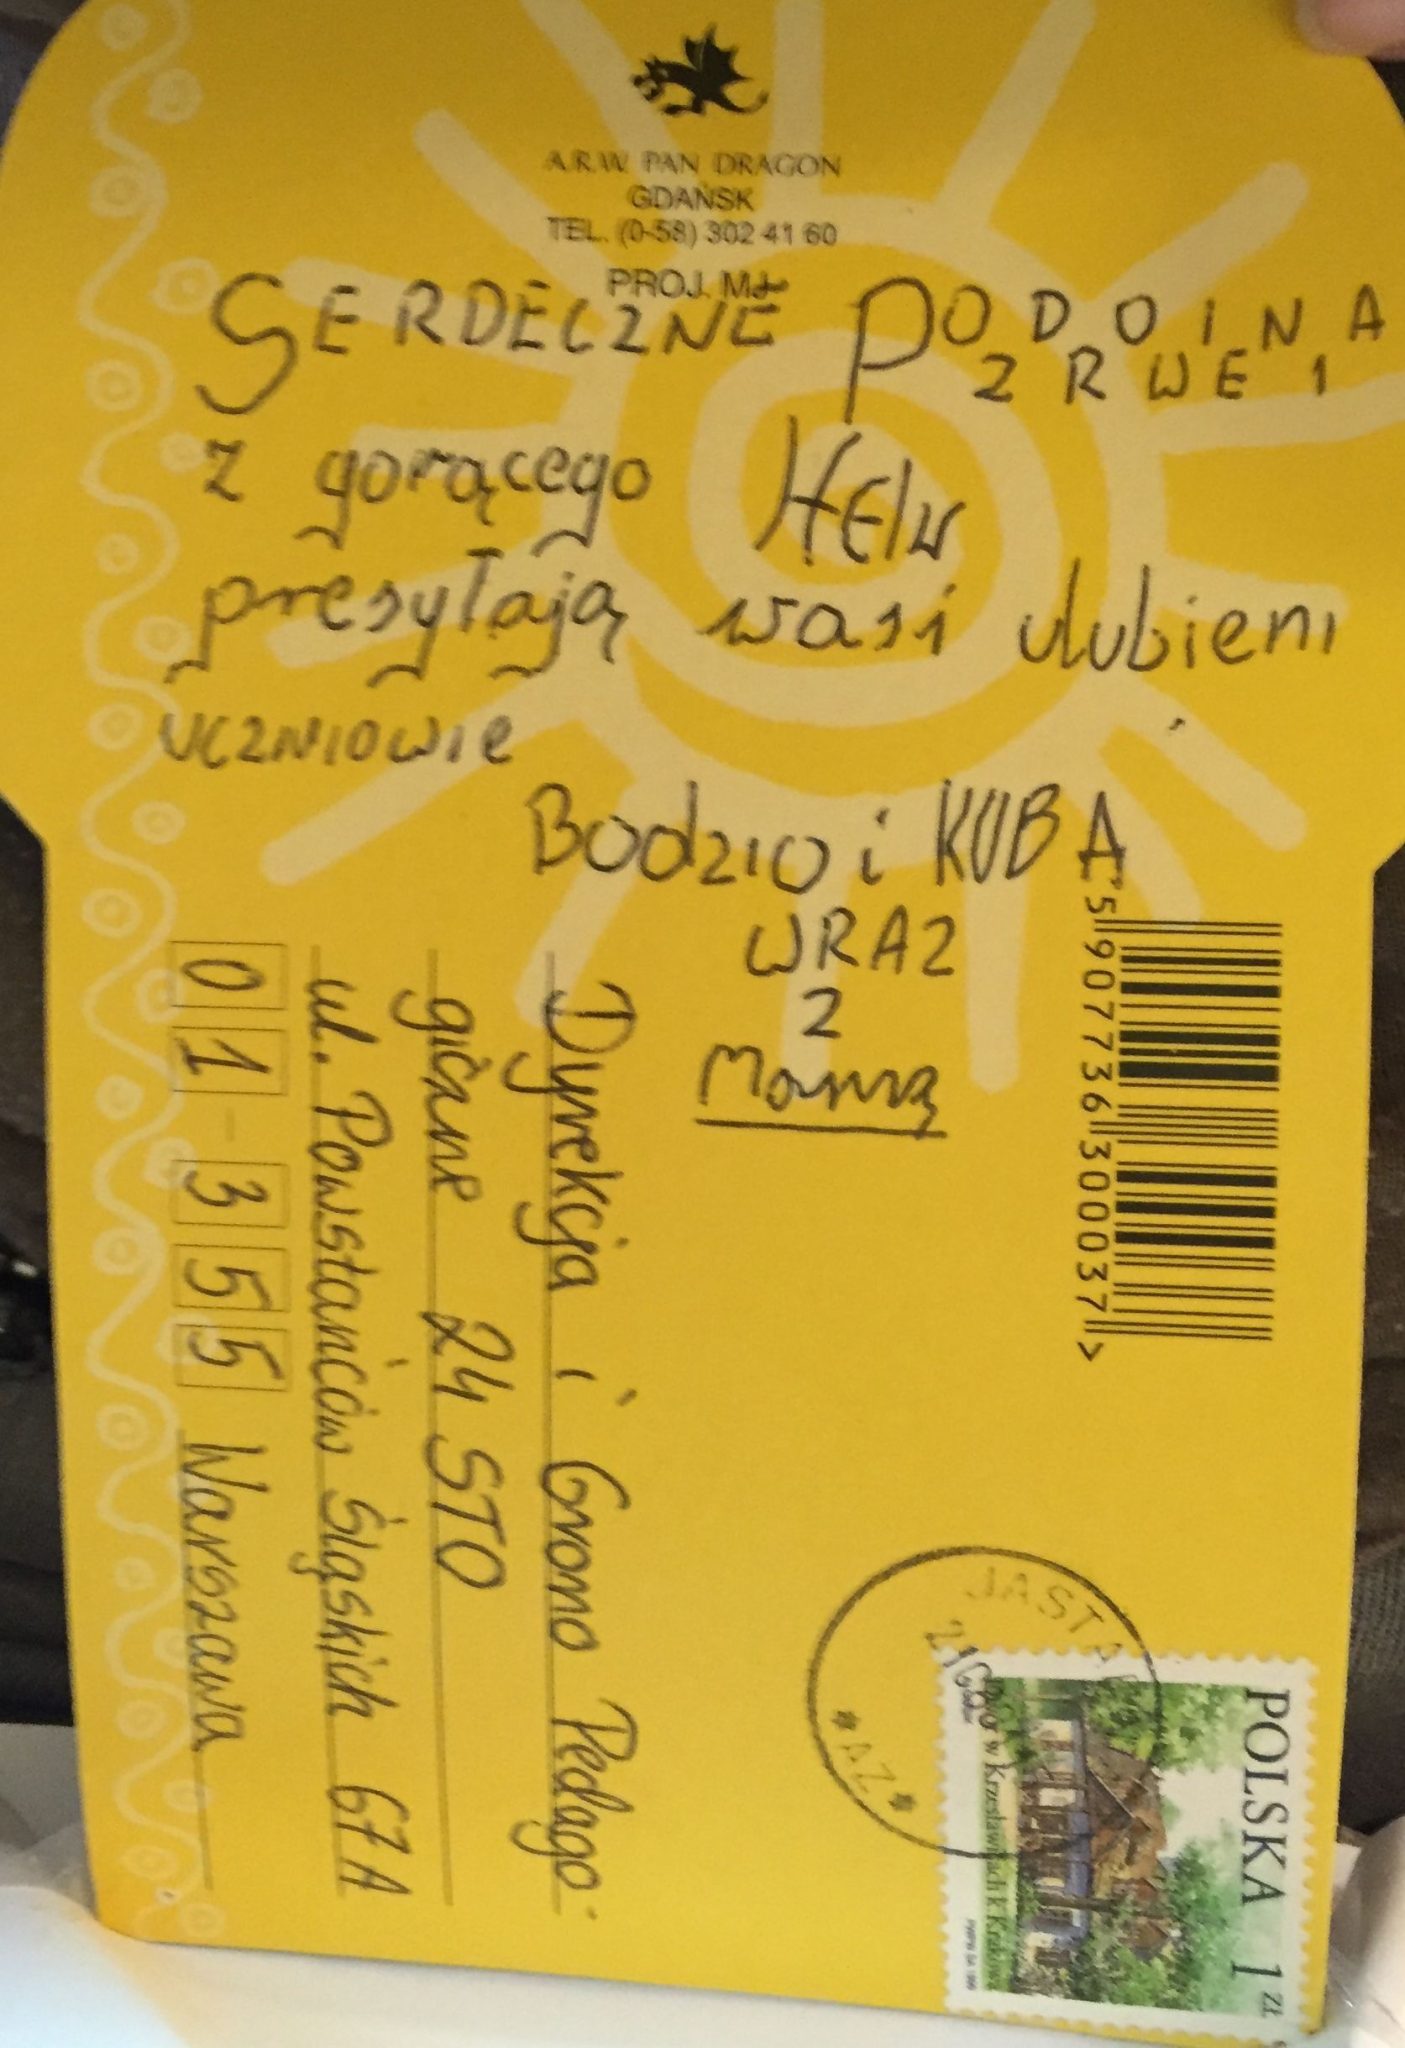 A.R.W. PAN DRAGON
GDAŃSK
TEL. (0-58) 302 41 60
PROJ. MJ
SERDECZNE POZDROWIENIA
z gorącego HElu
presyłają wasi ulubieni
UCZNIOWIE
BODZIO i KUBA
WRAZ
Z
Mamą
5 907736 300037 >
Dyrekcja i Grono Pedago-
giczne 24 STO
ul. Powstańców Śląskich 67A
01-355 Warszawa
POLSKA 1 ZŁ
w Krzesławicach k Krakowa
JASTA
*AZ*